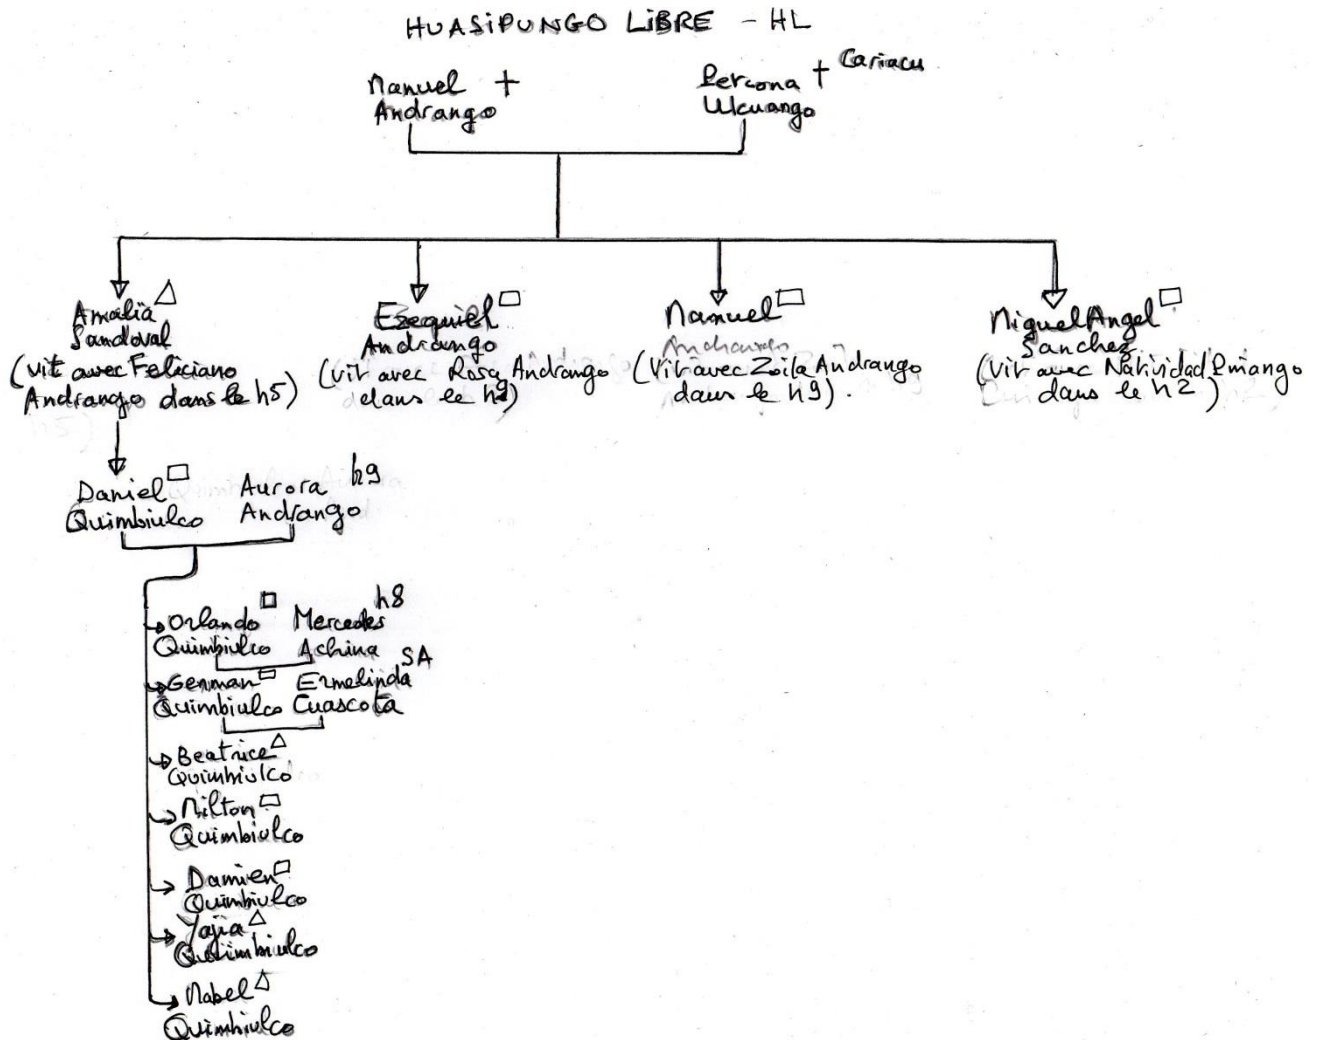 HUASIPUNGO LIBRE - HL
Manuel + 
Andrango
Persona + Cariacu
Ulcuango
Amalia
Sandoval
(vit avec Feliciano
Andrango dans le h5)
Ezequiel
Andrango
(vit avec Rosa Andrango
dans le h9)
Manuel
(Vit avec Zoila Andrango
dans le h9).
Miguel Angel
Sanchez
(Vit avec Natividad
dans le h2)
Daniel
Quimbiulco
Aurora h9
Andrango
Orlando
Quimbiulco
Mercedes h8
Achina
German
Quimbiulco
Ermelinda SA
Cuascota
Beatrice
Quimbiulco
Milton
Quimbiulco
Damien
Quimbiulco
Yajia
Quimbiulco
Mabel
Quimbiulco